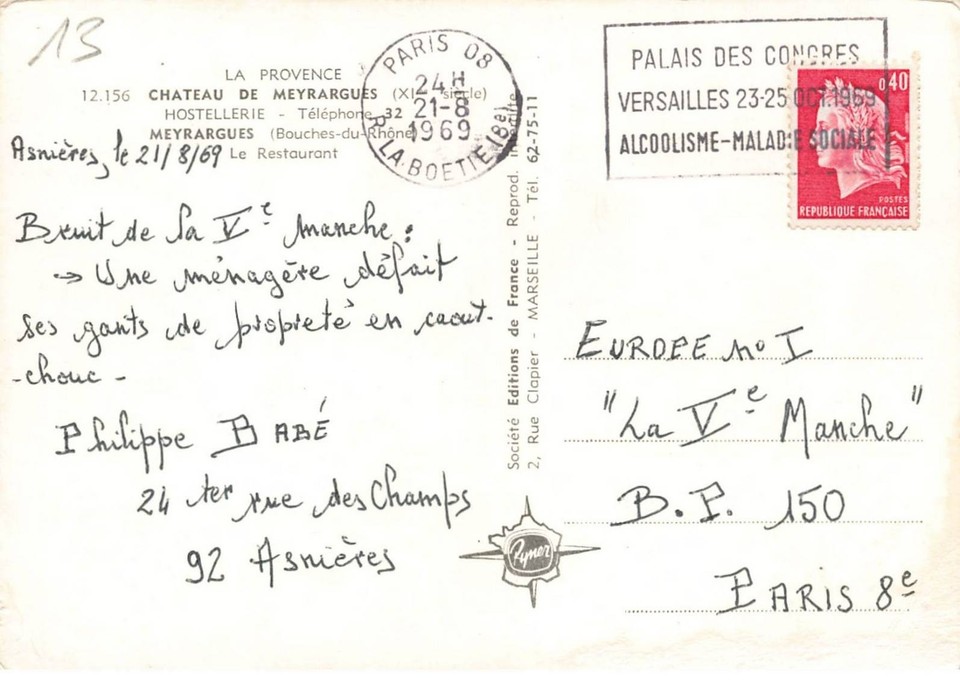 13
LA PROVENCE
12.156 CHATEAU DE MEYRARGUES (XIe siècle)
HOSTELLERIE - Téléphone 32
MEYRARGUES (Bouches-du-Rhône)
Le Restaurant
Asnières, le 21/8/69
Bruit de la Ve Manche :
→ Une ménagère défait
ses gants de propreté en caout-
-chouc -
Philippe BABÉ
24 ter rue des Champs
92 Asnières
PARIS 08
24H
21-8
1969
R. LA BOETIE (8e)
PALAIS DES CONGRES
VERSAILLES 23-25 OCT.1969
ALCOOLISME-MALADIE SOCIALE
0,40
POSTES
REPUBLIQUE FRANÇAISE
Société Editions de France - Reprod. interdite
2, Rue Clapier - MARSEILLE - Tél. 62-75-11
Rymer
EUROPE No I
"La Ve Manche"
B.P. 150
PARIS 8e